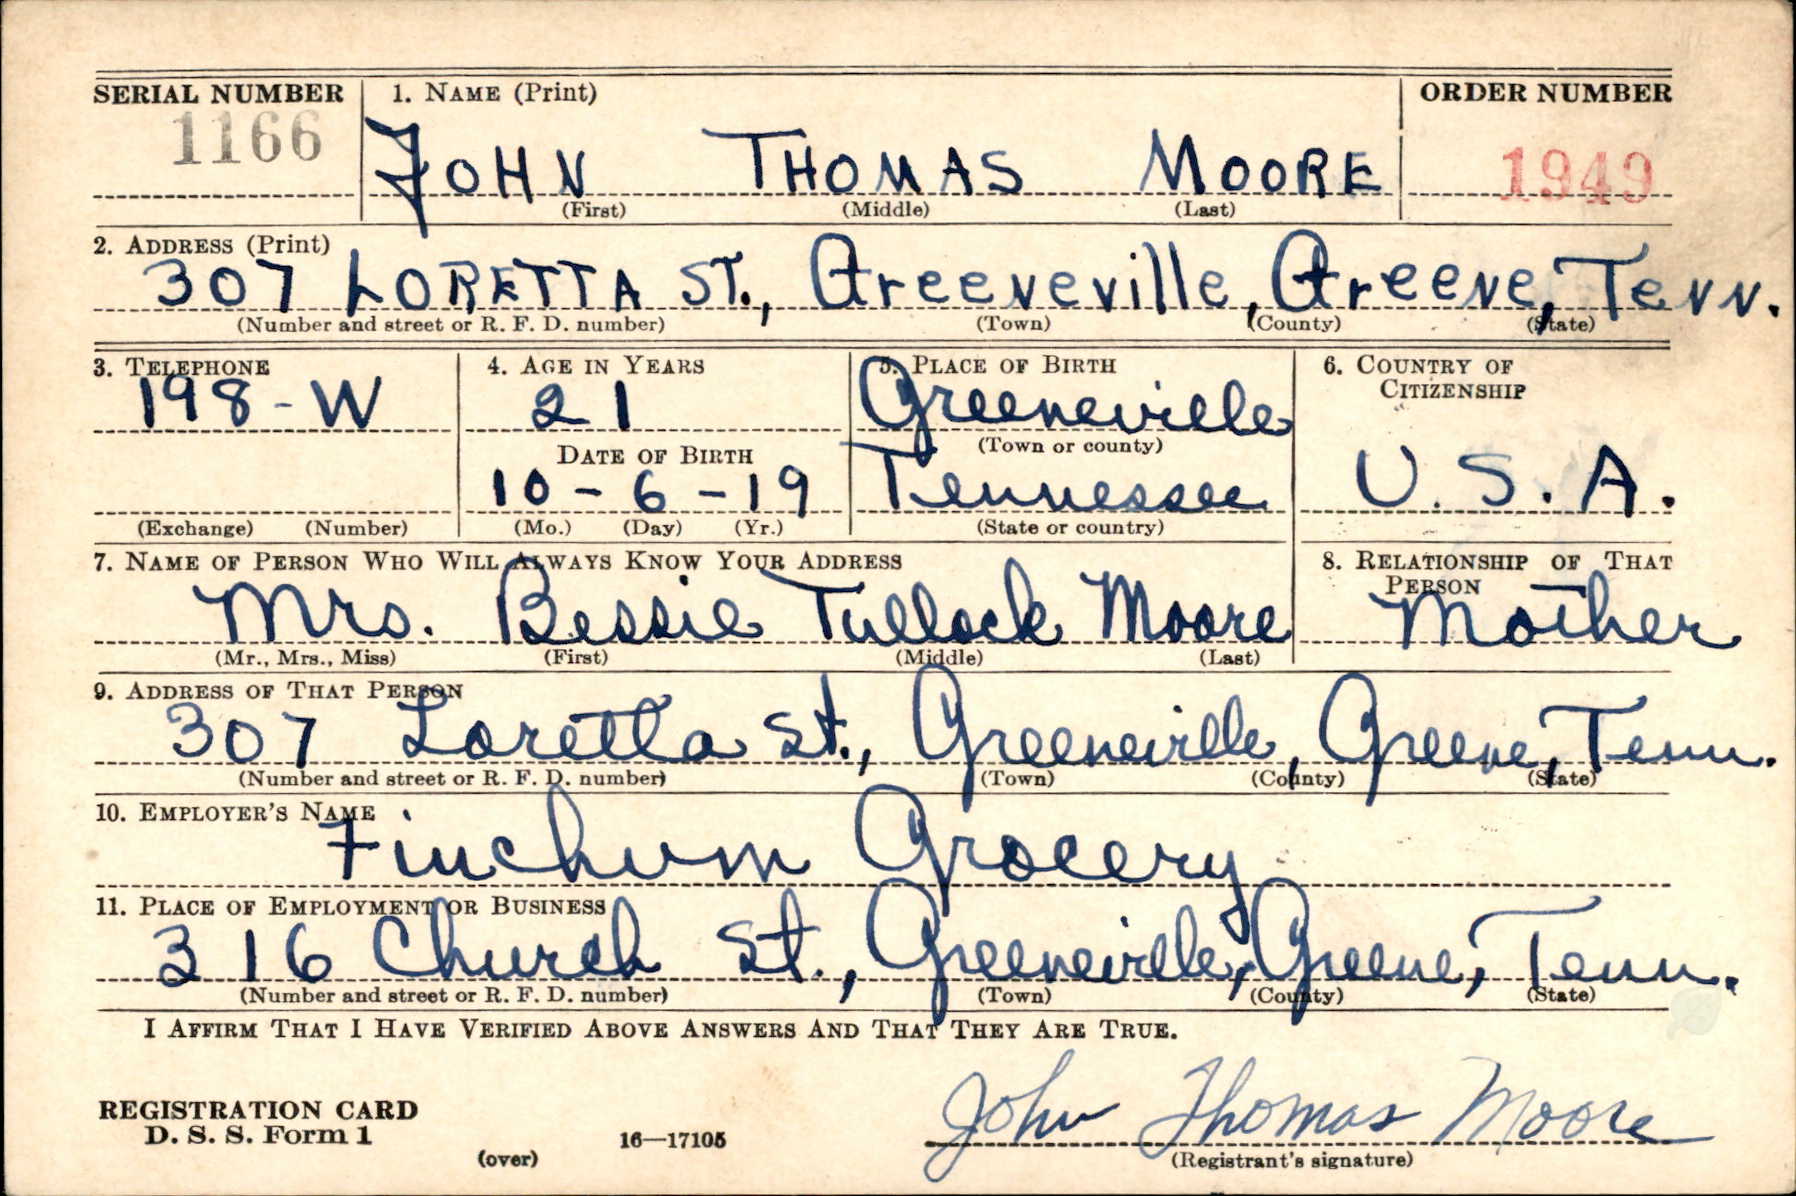 SERIAL NUMBER 1. NAME (Print) ORDER NUMBER
1166 JOHN THOMAS MOORE 1949
(First) (Middle) (Last)
2. ADDRESS (Print)
307 LORETTA ST., Greeneville, Greene, Tenn.
(Number and street or R. F. D. number) (Town) (County) (State)
3. TELEPHONE 4. AGE IN YEARS 5. PLACE OF BIRTH 6. COUNTRY OF CITIZENSHIP
198-W 21 Greeneville
(Town or county)
DATE OF BIRTH
10-6-19 Tennessee U.S.A.
(Exchange) (Number) (Mo.) (Day) (Yr.) (State or country)
7. NAME OF PERSON WHO WILL ALWAYS KNOW YOUR ADDRESS 8. RELATIONSHIP OF THAT PERSON
Mrs. Bessie Tullock Moore Mother
(Mr., Mrs., Miss) (First) (Middle) (Last)
9. ADDRESS OF THAT PERSON
307 Loretta St., Greeneville, Greene, Tenn.
(Number and street or R. F. D. number) (Town) (County) (State)
10. EMPLOYER'S NAME
Finchum Grocery
11. PLACE OF EMPLOYMENT OR BUSINESS
316 Church St., Greeneville, Greene, Tenn.
(Number and street or R. F. D. number) (Town) (County) (State)
I AFFIRM THAT I HAVE VERIFIED ABOVE ANSWERS AND THAT THEY ARE TRUE.
REGISTRATION CARD
D. S. S. Form 1 John Thomas Moore
(over) 16—17105 (Registrant's signature)